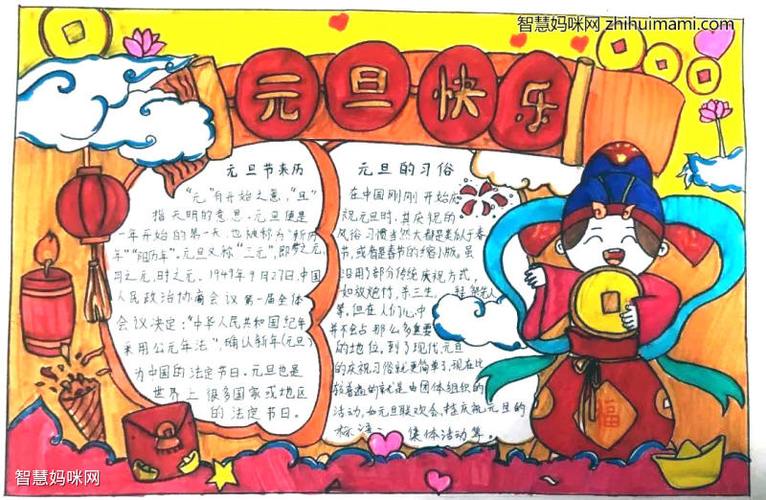 智慧妈咪网 zhihuimami.com
元旦快乐
元旦节来历
"元"有开始之意,"旦"
指天明的意思。元旦便是
一年开始的第一天,也被称为"新历
年""阳历年"。元旦又称"三元",即岁之元、
月之元,时之元。1949年9月27日,中国
人民政治协商会议第一届全体
会议决定:"中华人民共和国纪年
采用公元年法",确认新年(元旦)
为中国的法定节日。元旦也是
世界上很多国家或地区
的法定节日。
元旦的习俗
在中国刚刚开始庆
祝元旦时,其庆祝的
风俗习惯当然大都是类似于春
节,或者是春节的缩小版。虽
沿用了部分传统庆祝方式,
如放炮竹,杀三生,
等,但在人们心中
并不会占那么多重要
的地位,到了现代,元旦
的庆祝习俗就更简单了,现在比
较普遍的就是由团体组织的
活动,如元旦联欢会,挂庆祝元旦的
标语、集体活动等。
福
智慧妈咪网